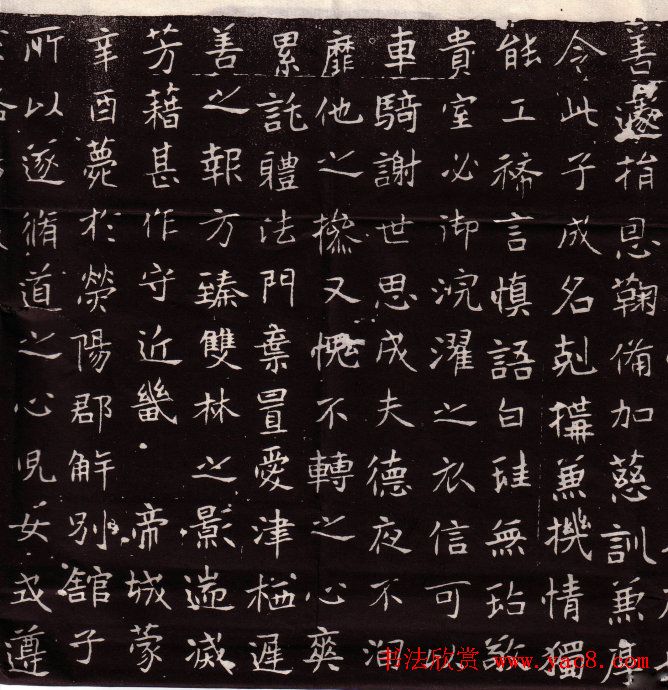 善指恩鞠備加慈訓兼厚
令此子成名剋搆兼機情獨
能工稀言慎語白珪無玷敬
貴室必御浣濯之衣信可
車騎謝世思成夫德夜不
靡他之操又愧不轉之心爽
累託體法門棄置愛津栖遲
善之報方臻雙林之影遄滅
芳藉甚作守近畿帝城蒙
辛酉薨於滎陽郡解別舘子
所以遂脩道之心児女式遵
书法欣赏 www.yac8.com